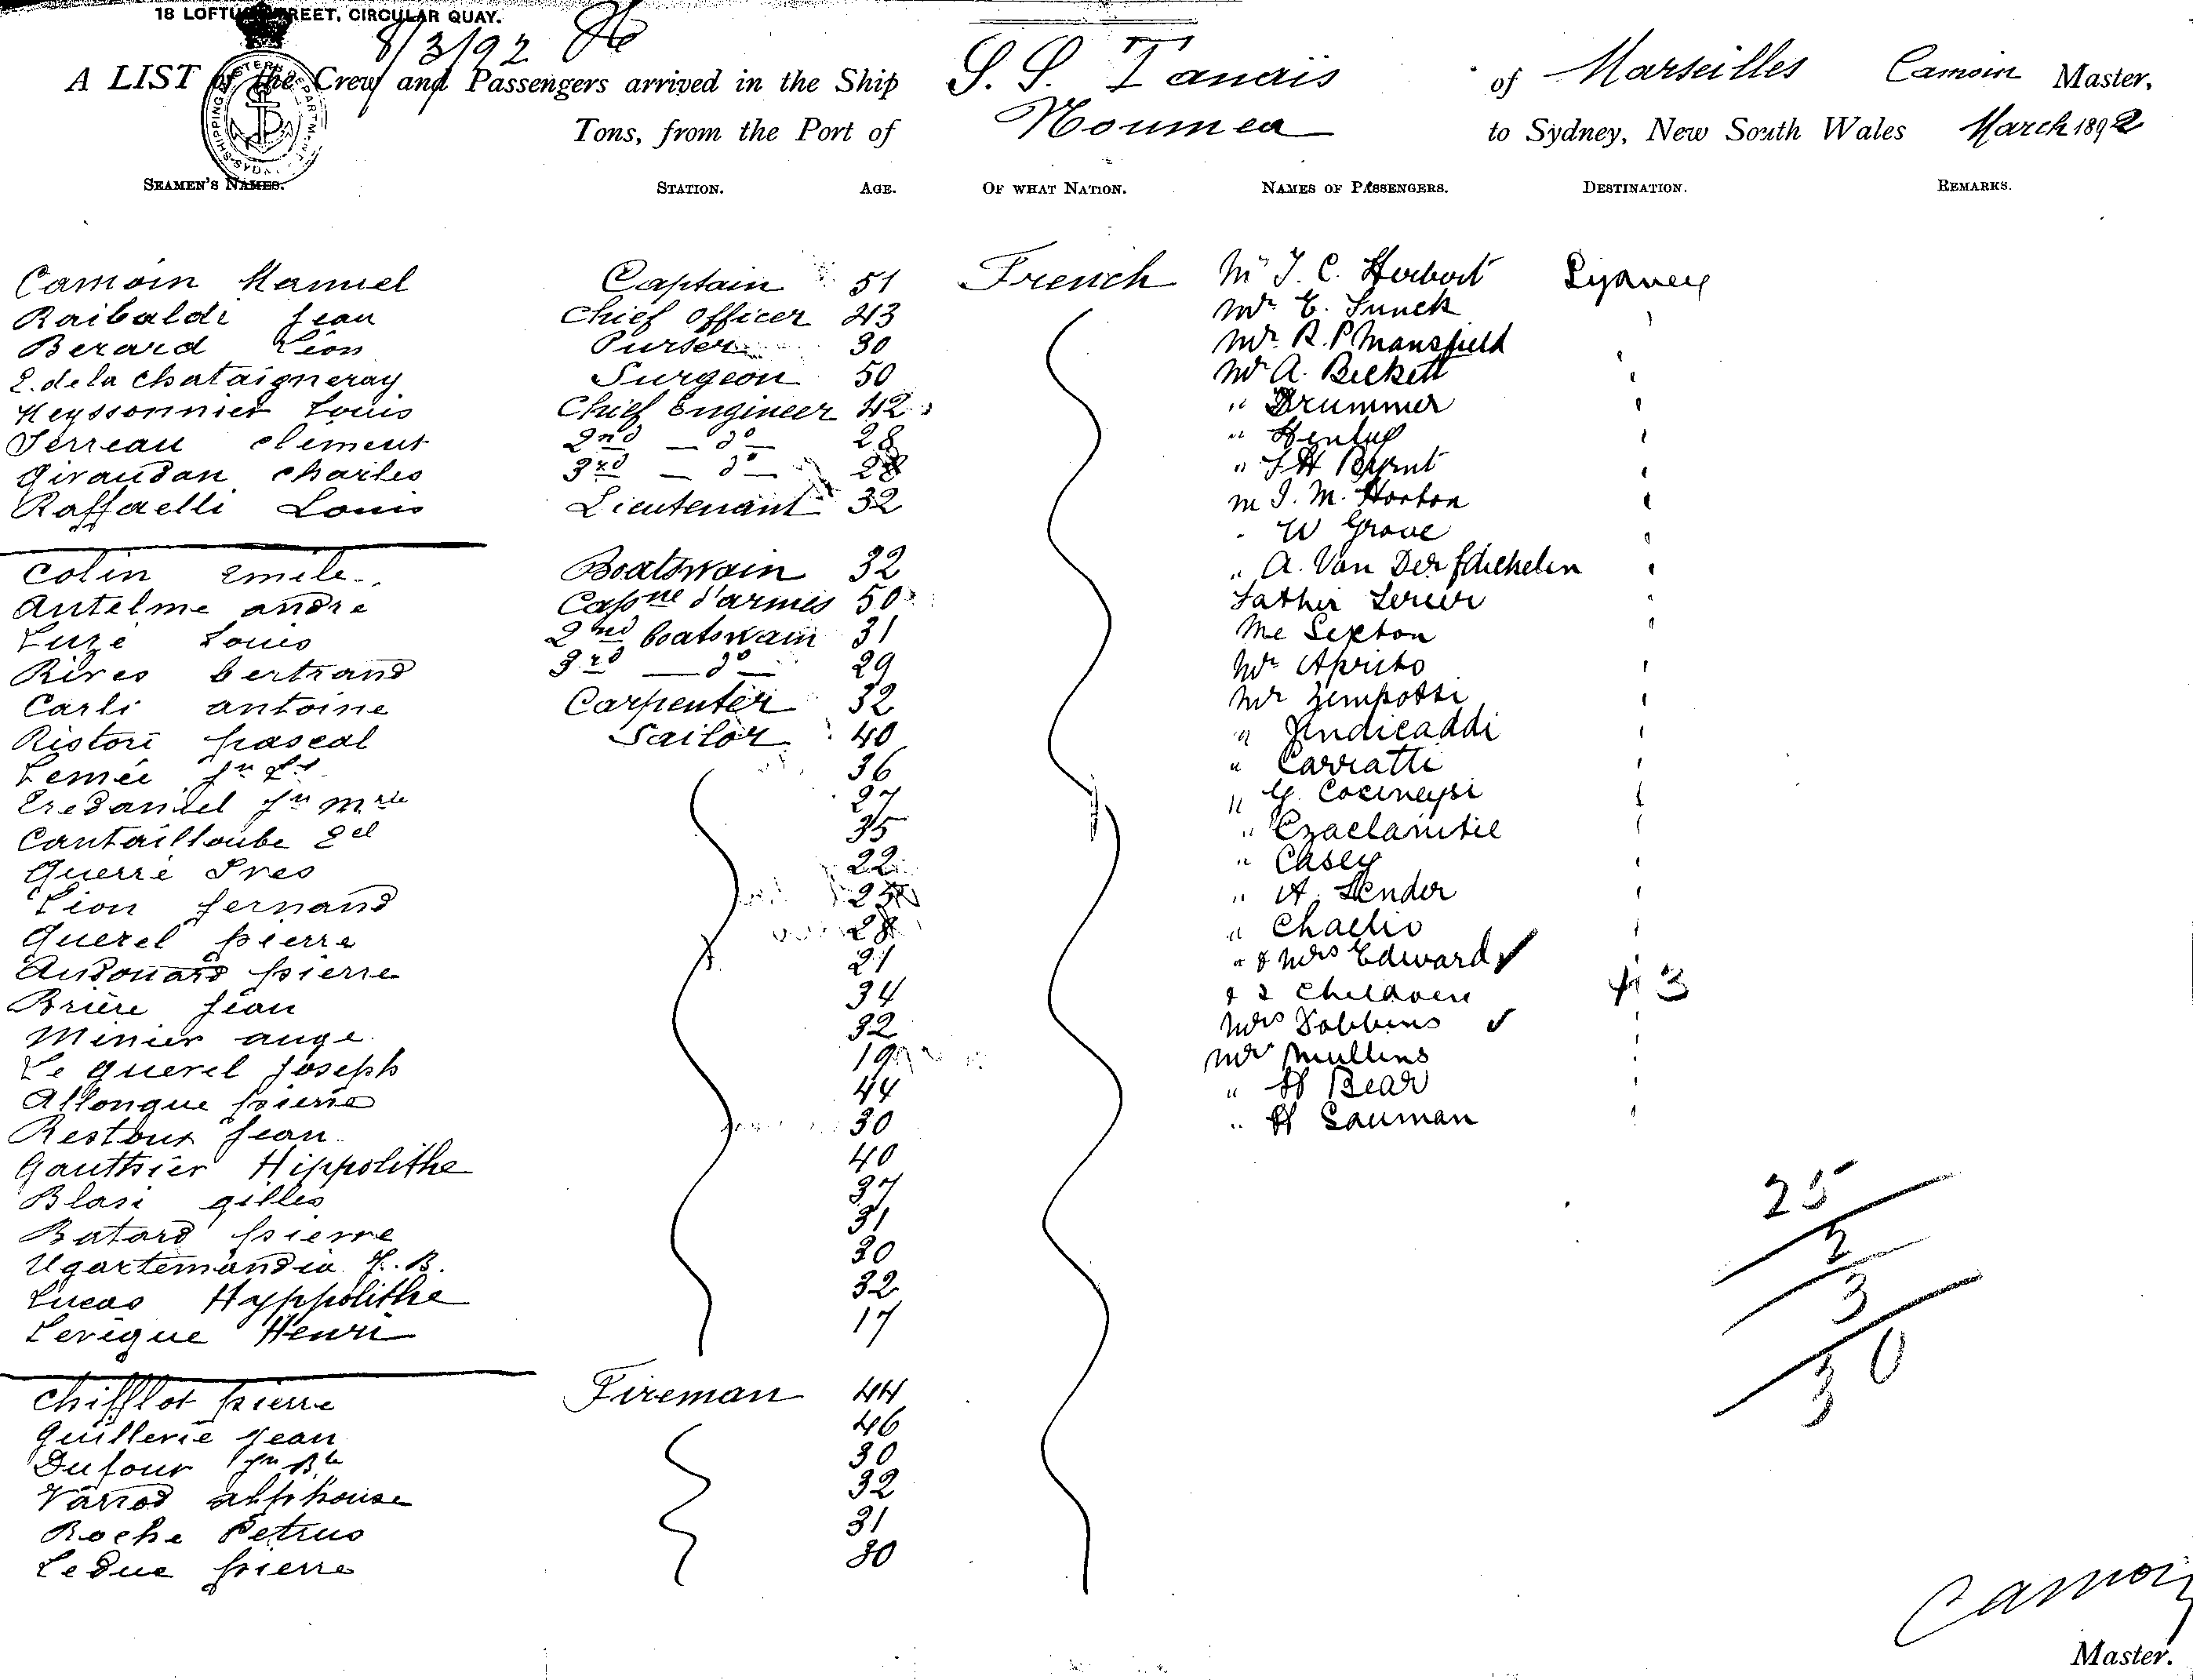 18 LOFTUS STREET, CIRCULAR QUAY.
8/3/92
A LIST of the Crew and Passengers arrived in the Ship S. S. Tanais of Marseilles Camoin Master,
Tons, from the Port of Noumea to Sydney, New South Wales March 1892
SEAMEN'S NAMES. STATION. AGE. OF WHAT NATION. NAMES OF PASSENGERS. DESTINATION. REMARKS.
Camoin Manuel Captain 51 French Mr J. C. Herbert Sydney
Raibaldi Jean Chief Officer 43 Mr E. Sunck
Berard Léon Purser 30 Mr R. P Mansfield
E. de la Chataigneray Surgeon 50 Mr A. Beckett
Keyssonnier Louis Chief Engineer 42 " Drummer
Terreau Clément 2nd — do — 28 "
Giraudan Charles 3rd — do — 28 "
Raffaelli Louis Lieutenant 32 M J. M. Horton
W Grove
Colin Emile Boatswain 32 " A. Van Der
Antelme André Capne d'armes 50 Father
Luzé Louis 2nd boatswain 31 Me Sexton
Rives bertrand 3rd — do — 29 Mr
Carli antoine Carpenter 32 Mr
Ristori pascal Sailor 40 "
Lemée Jn 36 " Carratti
Jn 27 " G.
Cantailloube 35 "
Querré Yves 22 " Casey
Lion fernand 25 " A. Lender
Querel pierre 28 "
Audouard pierre 21 " & Mrs Edward ✓
Brière Jean 34 & 2 Children 3
Minier ange 32 Mrs Dobbins ✓
Le querel Joseph 19 Mr Mullins
Allongue pierre 44 " H Bear
Restoux Jean 30 " H Lauman
Gauthier Hippolithe 40
Blasi gilles 37
Batard pierre 31
Ugartemandia J. B. 30
Lucas Hyppolithe 32
Levêque Henri 17
25
2
3
30
Chifflot pierre Fireman 44
Guillerie Jean 46
Dufour Jn Bte 30
Varrod alphonse 32
Roche Petrus 31
Leduc pierre 30
Camoin
Master.